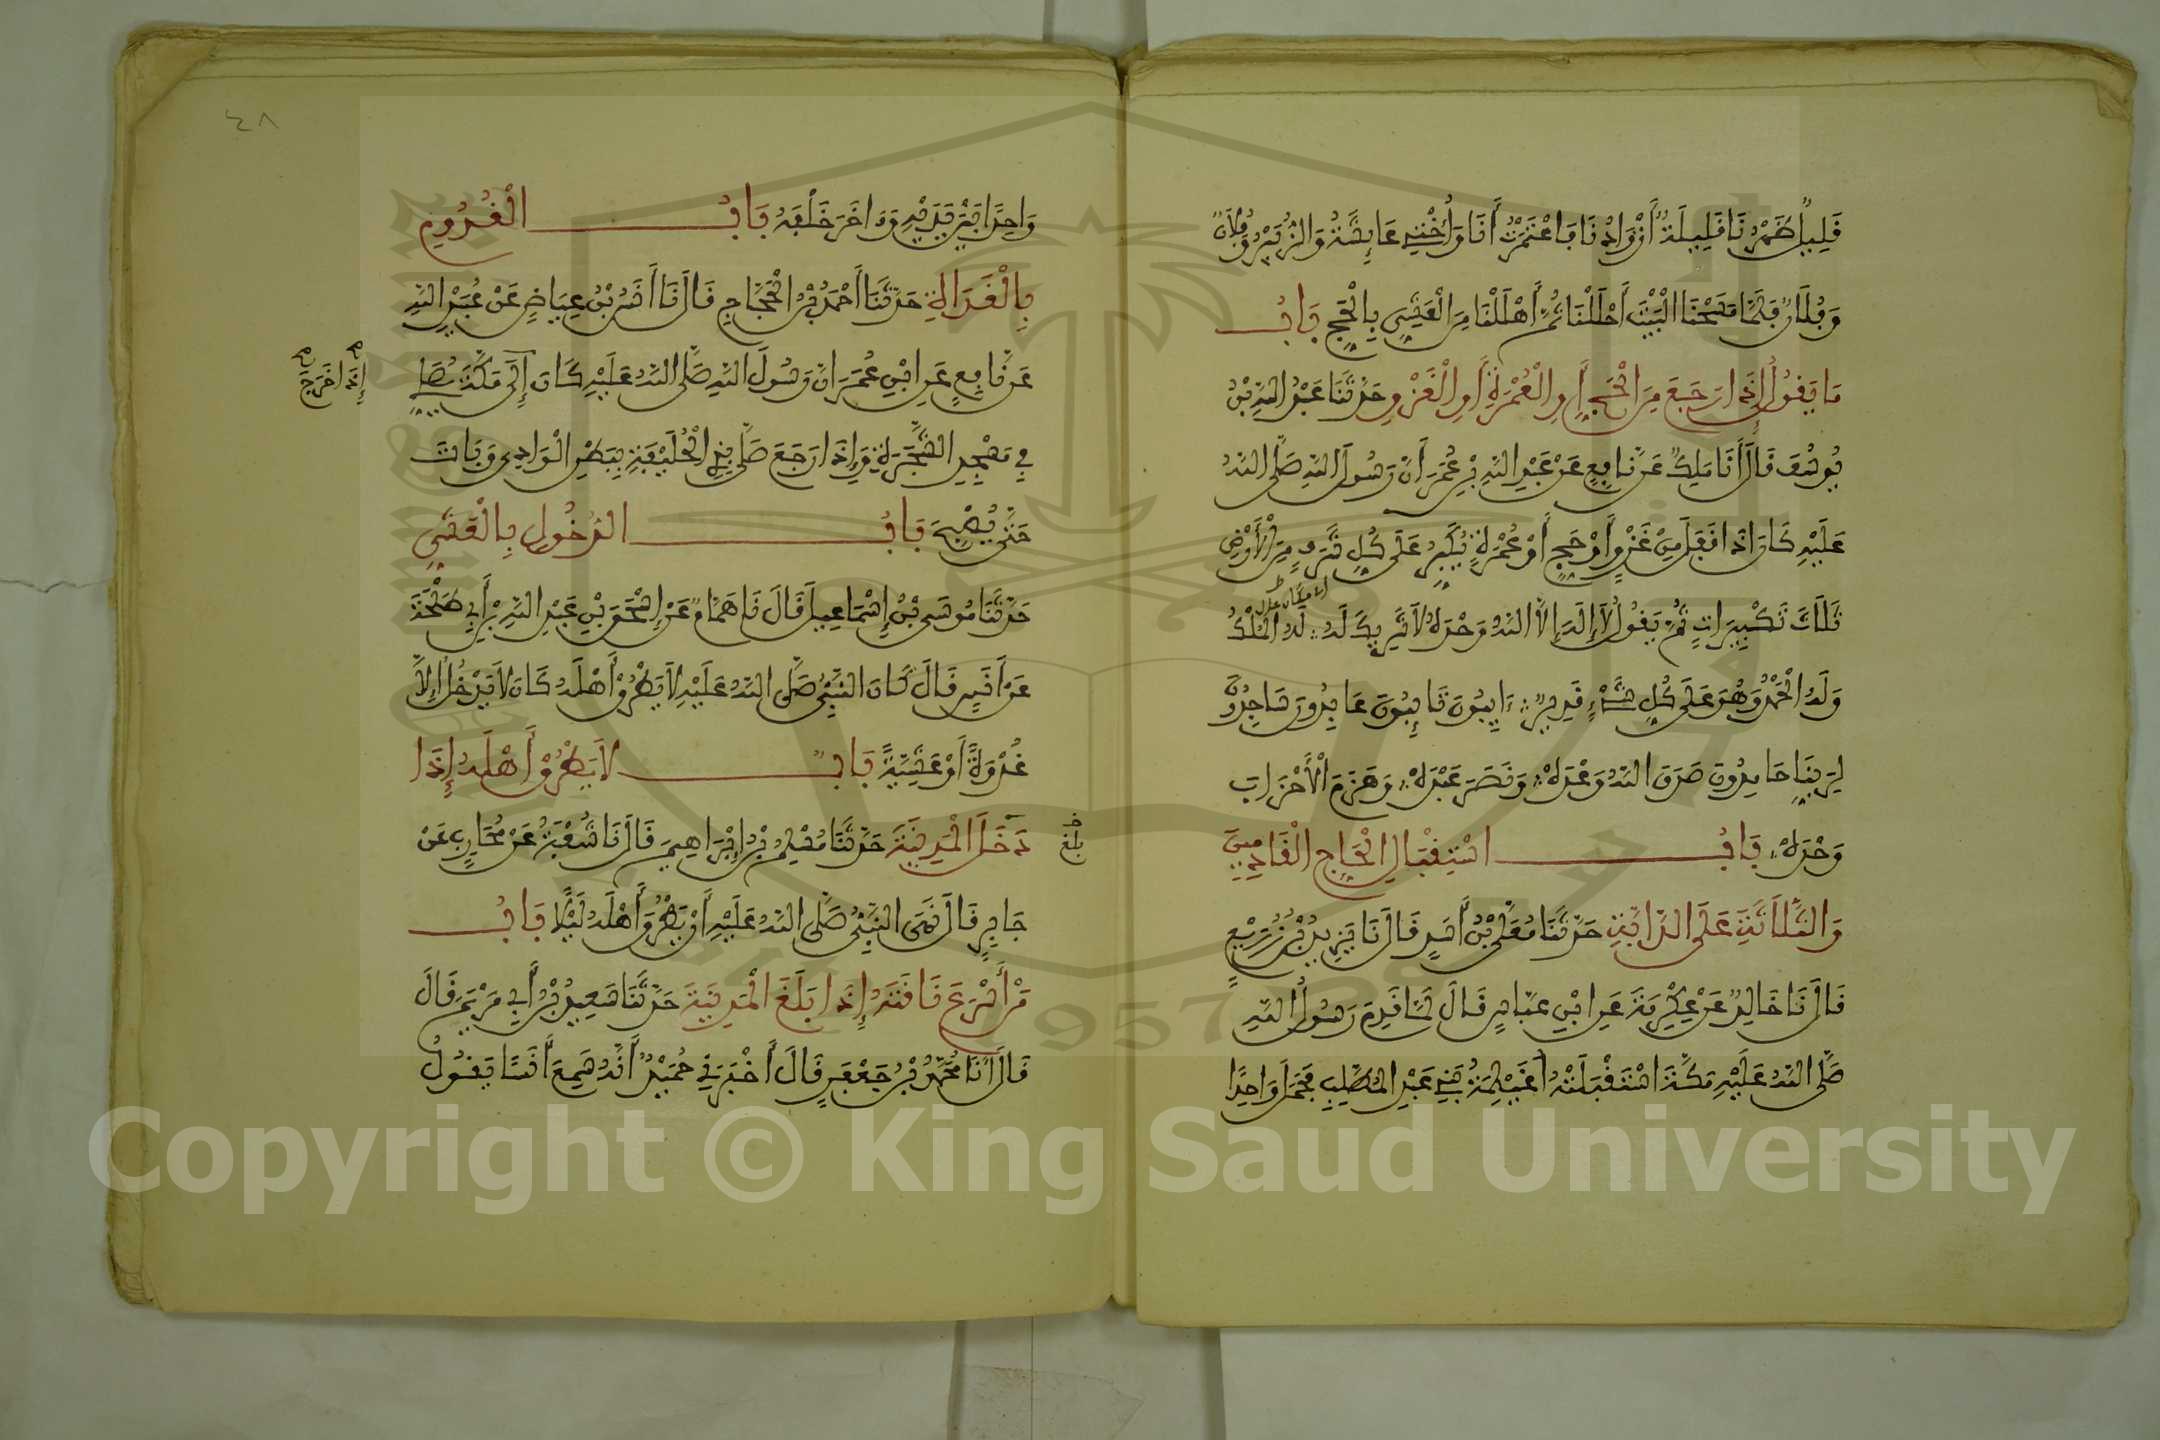 قَلِيلٌ ظَهْرُنَا قَلِيلَةٌ أَزْوَادُنَا فَاعْتَمَرْتُ أَنَا وَأُخْتِي عَائِشَةُ وَالزُّبَيْرُ وَفُلَانٌ
وَفُلَانٌ فَلَمَّا مَسَحْنَا الْبَيْتَ أَحْلَلْنَا ثُمَّ أَهْلَلْنَا مِنَ الْعَشِيِّ بِالْحَجِّ بَابُ
مَا يَقُولُ إِذَا رَجَعَ مِنَ الْحَجِّ أَوِ الْعُمْرَةِ أَوِ الْغَزْوِ حَدَّثَنَا عَبْدُ اللَّهِ بْنُ
يُوسُفَ قَالَ أَنَا مَلِكٌ عَنْ نَافِعٍ عَنْ عَبْدِ اللَّهِ بْنِ عُمَرَ أَنَّ رَسُولَ اللَّهِ صَلَّى اللَّهُ
عَلَيْهِ كَانَ إِذَا قَفَلَ مِنْ غَزْوٍ أَوْ حَجٍّ أَوْ عُمْرَةٍ يُكَبِّرُ عَلَى كُلِّ شَرَفٍ مِنَ الْأَرْضِ
ثَلَاثَ تَكْبِيرَاتٍ ثُمَّ يَقُولُ لَا إِلَهَ إِلَّا اللَّهُ وَحْدَهُ لَا شَرِيكَ لَهُ لَهُ الْمُلْكُ
وَلَهُ الْحَمْدُ وَهُوَ عَلَى كُلِّ شَيْءٍ قَدِيرٌ ءَايِبُونَ تَائِبُونَ عَابِدُونَ سَاجِدُونَ
لِرَبِّنَا حَامِدُونَ صَدَقَ اللَّهُ وَعْدَهُ وَنَصَرَ عَبْدَهُ وَهَزَمَ الْأَحْزَابَ
وَحْدَهُ بَابُ اسْتِقْبَالِ الْحَاجِّ الْقَادِمِينَ
وَالثَّلَاثَةِ عَلَى الدَّابَّةِ حَدَّثَنَا مُعَلَّى بْنُ أَسَدٍ قَالَ نَا يَزِيدُ بْنُ زُرَيْعٍ
قَالَ نَا خَالِدٌ عَنْ عِكْرِمَةَ عَنِ ابْنِ عَبَّاسٍ قَالَ لَمَّا قَدِمَ رَسُولُ اللَّهِ
صَلَّى اللَّهُ عَلَيْهِ مَكَّةَ اسْتَقْبَلَتْهُ أُغَيْلِمَةُ بَنِي عَبْدِ الْمُطَّلِبِ فَحَمَلَ وَاحِدًا
٤٨
وَاحِدًا بَيْنَ يَدَيْهِ وَءَاخَرَ خَلْفَهُ بَابُ الْقُدُومِ
بِالْغَدَاةِ حَدَّثَنَا أَحْمَدُ بْنُ الْحَجَّاجِ قَالَ نَا أَنَسُ بْنُ عِيَاضٍ عَنْ عُبَيْدِ اللَّهِ
عَنْ نَافِعٍ عَنِ ابْنِ عُمَرَ أَنَّ رَسُولَ اللَّهِ صَلَّى اللَّهُ عَلَيْهِ كَانَ إِلَى مَكَّةَ يُصَلِّي
إِذَا خَرَجَ
فِي مَسْجِدِ الشَّجَرَةِ وَإِذَا رَجَعَ صَلَّى بِذِي الْحُلَيْفَةِ بِبَطْنِ الْوَادِي وَبَاتَ
حَتَّى يُصْبِحَ بَابُ الدُّخُولِ بِالْعَشِيِّ
حَدَّثَنَا مُوسَى بْنُ إِسْمَاعِيلَ قَالَ نَا هَمَّامٌ عَنْ إِسْحَقَ بْنِ عَبْدِ اللَّهِ بْنِ أَبِي طَلْحَةَ
عَنْ أَنَسٍ قَالَ كَانَ النَّبِيُّ صَلَّى اللَّهُ عَلَيْهِ لَا يَطْرُقُ أَهْلَهُ كَانَ لَا يَدْخُلُ إِلَّا
غُدْوَةً أَوْ عَشِيَّةً بَابٌ لَا يَطْرُقْ أَهْلَهُ إِذَا
دَخَلَ الْمَدِينَةَ حَدَّثَنَا مُسْلِمُ بْنُ إِبْرَاهِيمَ قَالَ نَا شُعْبَةُ عَنْ مُحَارِبٍ عَنْ
بلغ
جَابِرٍ قَالَ نَهَى النَّبِيُّ صَلَّى اللَّهُ عَلَيْهِ أَنْ يَطْرُقَ أَهْلَهُ لَيْلًا بَابُ
مَنْ أَسْرَعَ نَاقَتَهُ إِذَا بَلَغَ الْمَدِينَةَ حَدَّثَنَا سَعِيدُ بْنُ أَبِي مَرْيَمَ قَالَ
قَالَ أَنَا مُحَمَّدُ بْنُ جَعْفَرٍ قَالَ أَخْبَرَنِي حُمَيْدٌ أَنَّهُ سَمِعَ أَنَسًا يَقُولُ
Copyright © King Saud University
1957